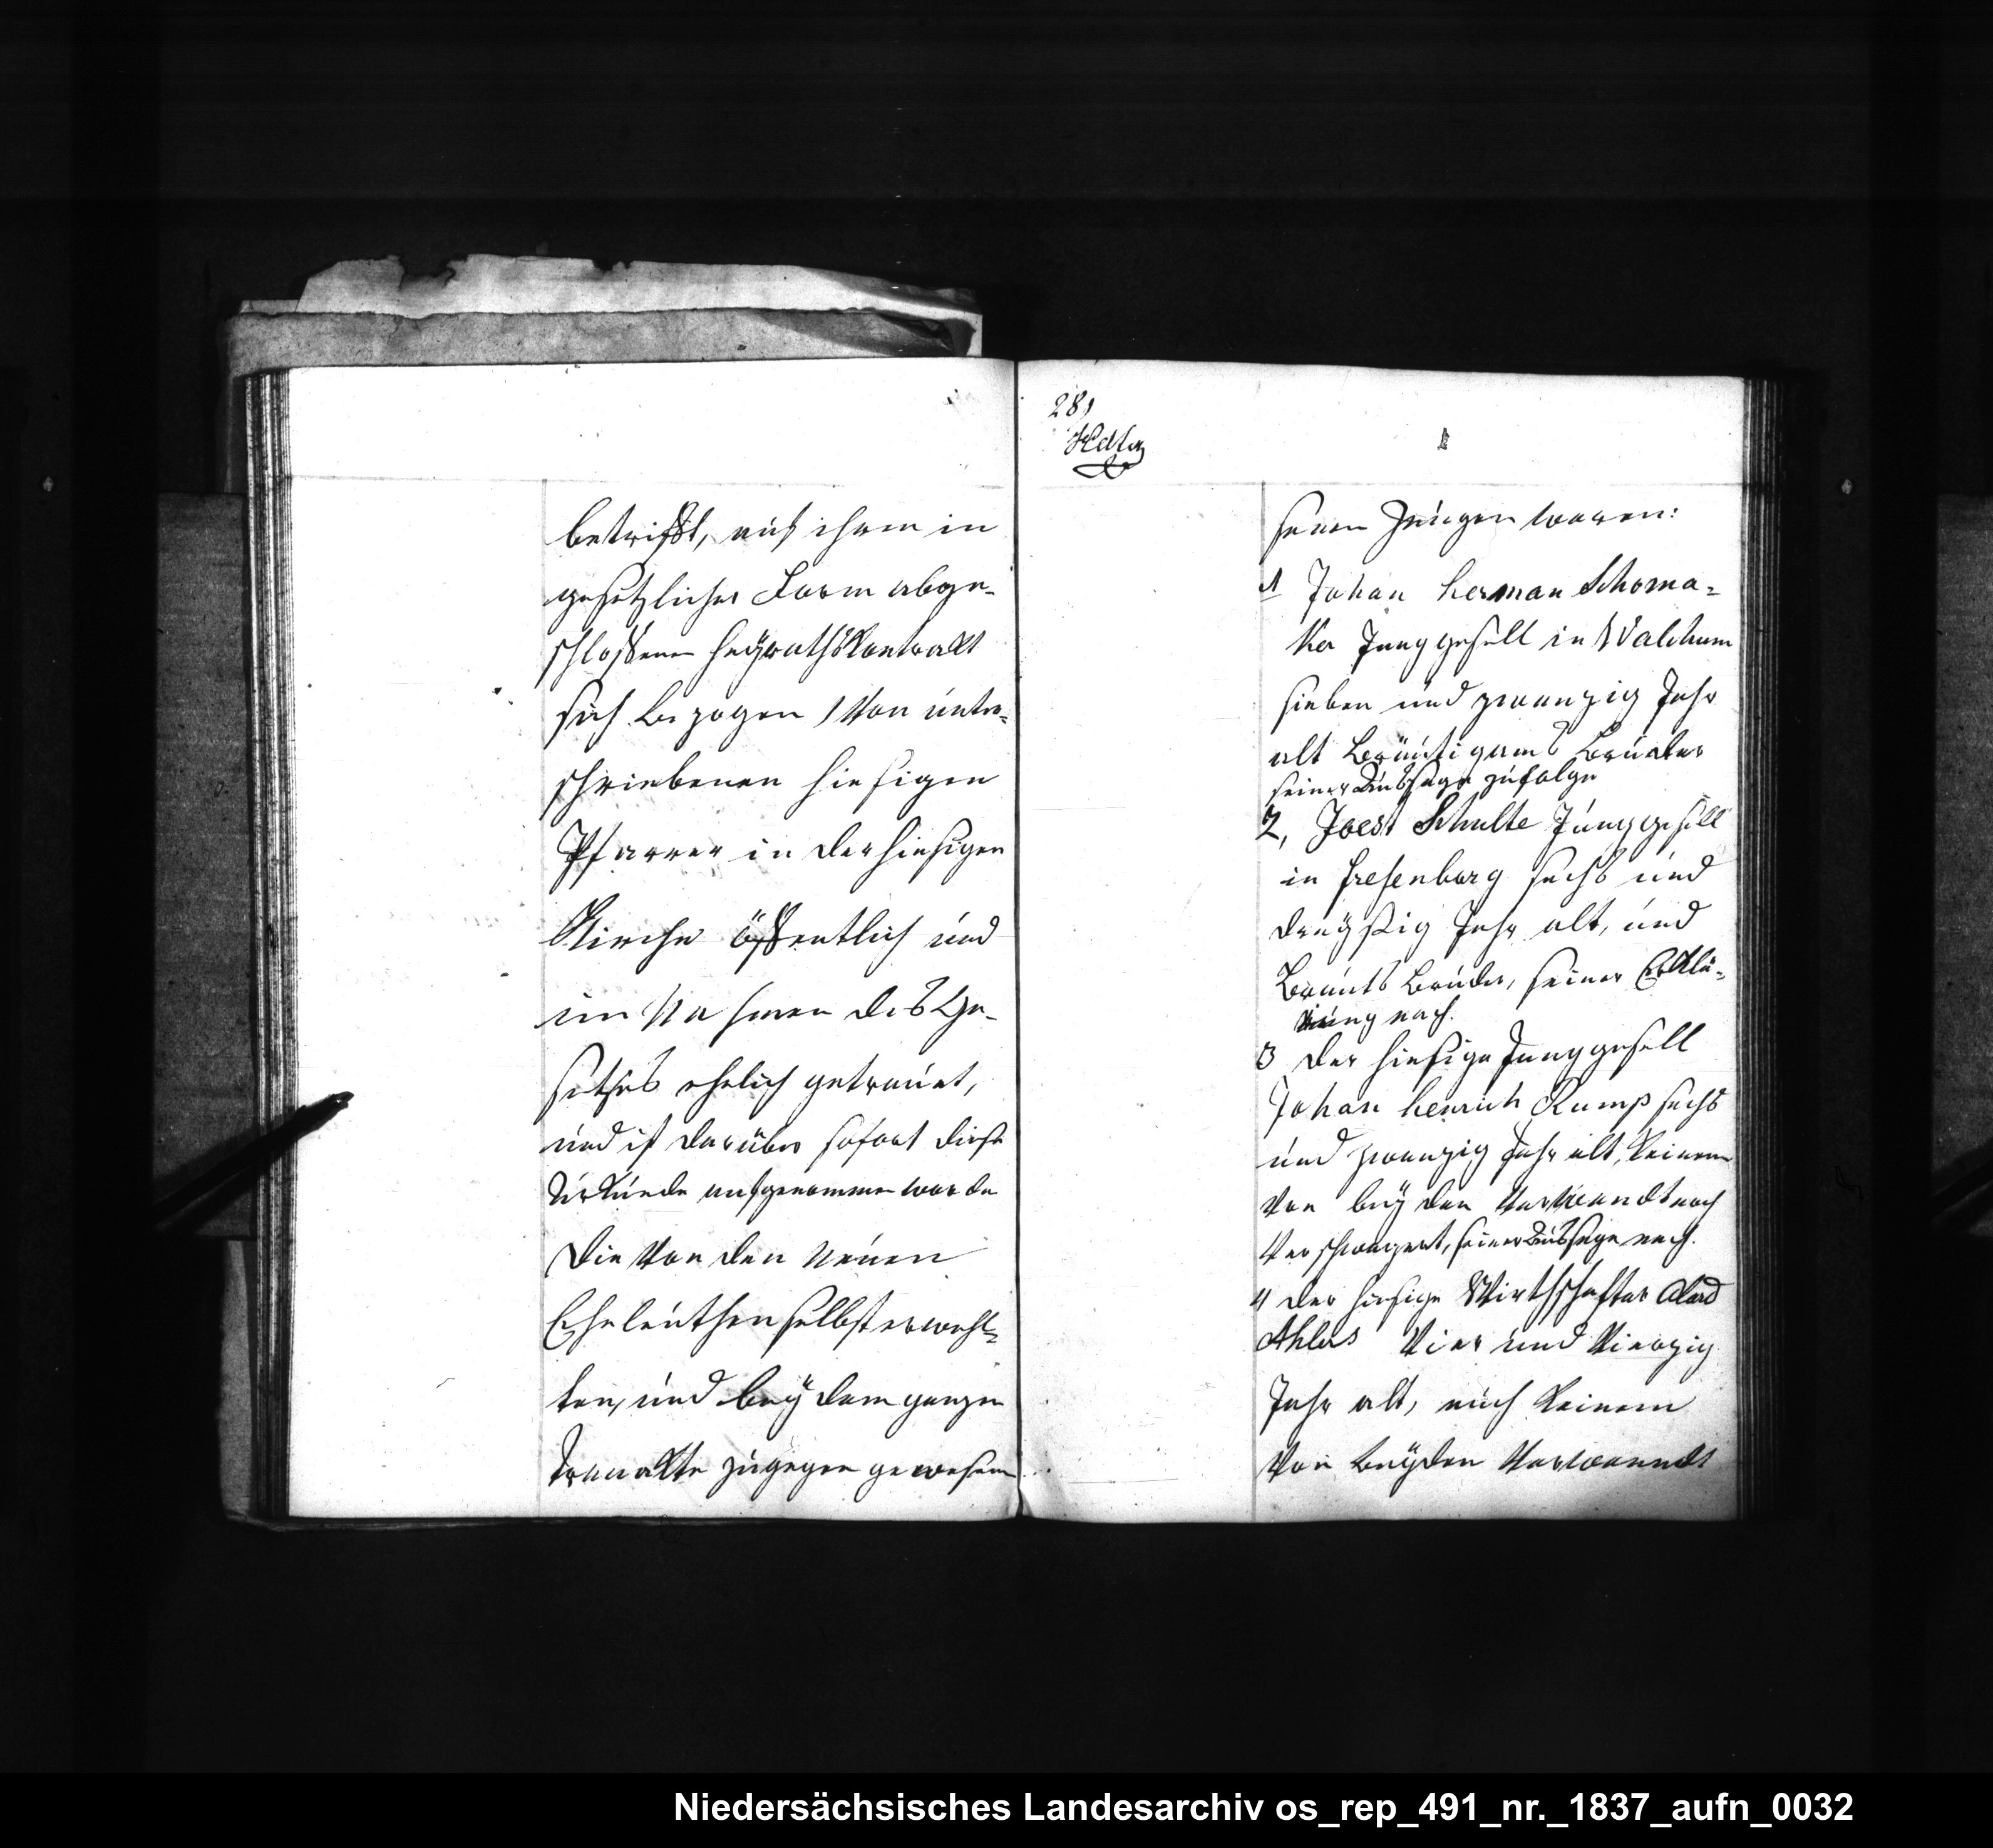 betrifft, auf ihren in
gesetzlicher Form abge-
schlossenen Heÿrathskontrakt
sich bezogen) von unter-
schriebenen hiesigen
Pfarrer in der hiesigen
Kirche öffentlich und
im Nahmen des Ge-
setzes ehelich getrauet,
und ist darüber sofort diese
Urkunde aufgenommen worden
Die von den neuen
Eheleuthen selbst erwehl-
ten, und beÿ dem ganzen
Trauakte zugegen gewesenen
28,
senen Zeugen waren:
1 Johan Herman Schoma=
ker Junggesell in Walchum
sieben und zwanzig Jahr
alt Bräutigams Bruder
seiner Aussage zufolge
2, Joest Schulte Junggesell
in Fresenburg sechs und
dreÿßig Jahr alt, und
Brauts Bruder, seiner Erklä-
rung nach.
3 der hiesige Junggesell
Johan Henrich Rump sechs
und zwanzig Jahr alt, keinem
von beÿden verwandt noch
verschwägert, seiner Aussage nach.
4 der hiesige Wirthschafter Alard
Ahlers vier und vierzig
Jahr alt, auch keinem
von beÿden verwandt
Niedersächsisches Landesarchiv os_rep_491_nr._1837_aufn_0032